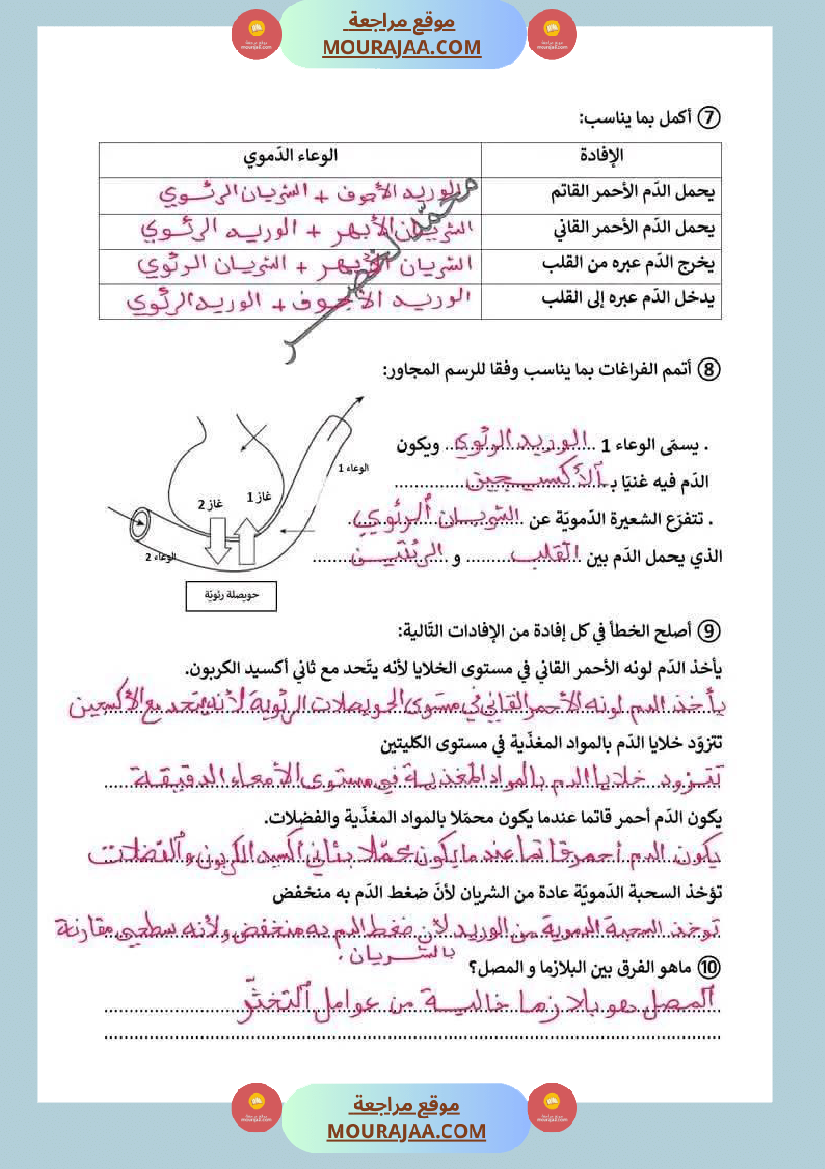 موقع مراجعة
MOURAJAA.COM
7 أكمل بما يناسب:
الإفادة | الوعاء الدّموي
يحمل الدّم الأحمر القاتم | الوريد الأجوف + الشريان الرئوي
يحمل الدّم الأحمر القاني | الشريان الأبهر + الوريد الرئوي
يخرج الدّم عبره من القلب | الشريان الأبهر + الشريان الرئوي
يدخل الدّم عبره إلى القلب | الوريد الأجوف + الوريد الرئوي
محمّد لخضر
8 أتمم الفراغات بما يناسب وفقا للرسم المجاور:
. يسمّى الوعاء 1 الوريد الرئوي ويكون
الدّم فيه غنيّا بـ الأكسيجين
. تتفرّع الشعيرة الدّمويّة عن الشريان الرئوي
الذي يحمل الدّم بين القلب و الرئتين
الوعاء 1
غاز 1
غاز 2
الوعاء 2
حويصلة رئويّة
9 أصلح الخطأ في كل إفادة من الإفادات التّالية:
يأخذ الدّم لونه الأحمر القاني في مستوى الخلايا لأنه يتّحد مع ثاني أكسيد الكربون.
يأخذ الدم لونه الأحمر القاني في مستوى الحويصلات الرئوية لأنه يتحد مع الأكسجين
تتزوّد خلايا الدّم بالمواد المغذّية في مستوى الكليتين
تتزود خلايا الدم بالمواد المغذية في مستوى الأمعاء الدقيقة
يكون الدّم أحمر قاتما عندما يكون محمّلا بالمواد المغذّية والفضلات.
يكون الدم أحمر قاتما عندما يكون محمّلا بثاني أكسيد الكربون والفضلات
تؤخذ السحبة الدّمويّة عادة من الشريان لأنّ ضغط الدّم به منخفض
توخذ السحبة الدموية من الوريد لأن ضغط الدم به منخفض ولأنه سطحي مقارنة
بالشريان.
10 ماهو الفرق بين البلازما و المصل؟
المصل هو بلازما خالية من عوامل التخثّر
موقع مراجعة
MOURAJAA.COM